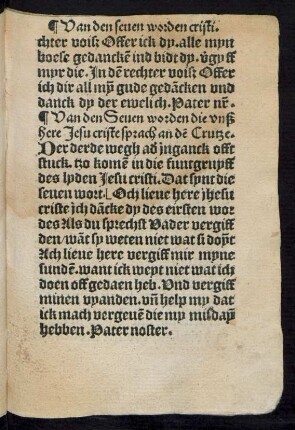 ¶ Van den seuen worden cristi.
chter vois: Offer ick dy. alle myn
boese gedancken̄ ind bidt dy. v̄gyff
myr die. In dē rechter vois: Offer
ich dir all mȳ gude gedācken vnd
danck dy der ewelich. Pater nr̄.
¶ Van den Seuen worden die vnß
here Jesu criste sprach an dē Crutze.
Der derde wegh ad̛ inganck offt
stuck. tzo komē in die funtgruyff
des lyden Jesu cristi. Dat synt die
seuen wort. Och lieue here jhesu
criste ich dācke dy des eirsten wor
des Als du sprechst Vader vergiff
den. wāt sy weten niet wat si doȳt
Ach lieue here vergiff mir myne
sundē. want ick weyt niet wat ich
doen off gedaen heb. Vnd vergiff
minen vyanden. vn̄ help my dat
ick mach vergeuē die my misdaȳ
hebben. Pater noster.